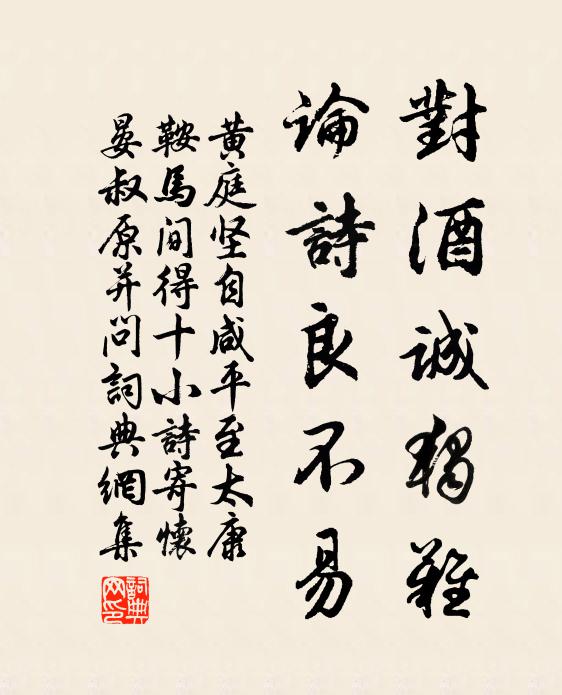 對酒誠獨難
論詩良不易
黄庭坚自咸平至太康
鞍馬间得十小詩寄懷
晏叔原并问詞典網集
詞典网印